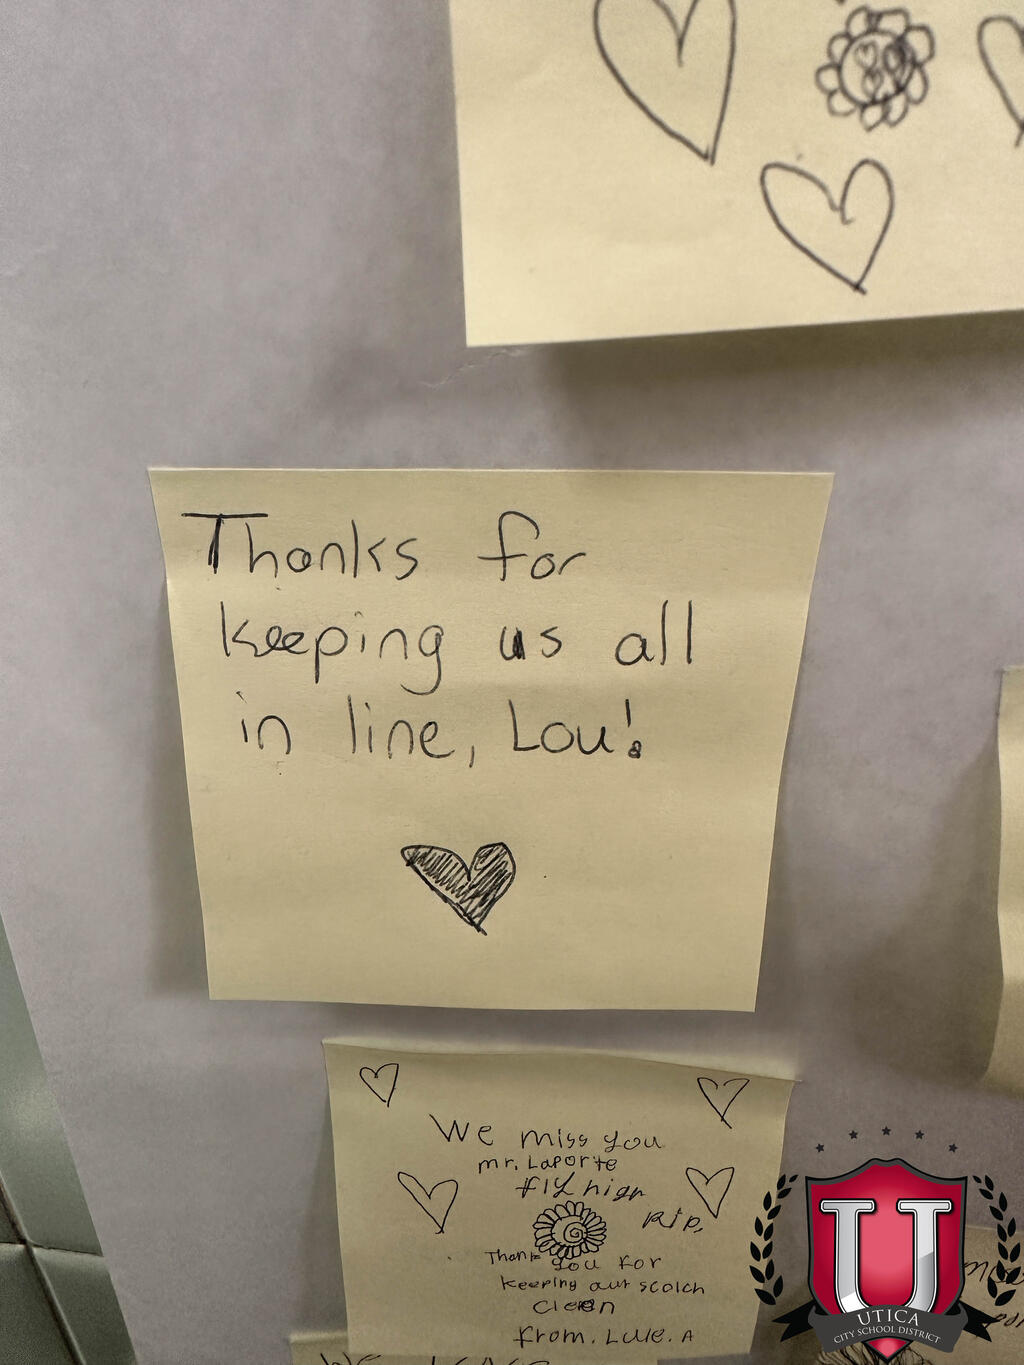 Thanks for
keeping us all
in line, Lou!
We miss you
mr. Laporte
fly high
Rip,
Thank you for
keeping our scolch
clean
from. Lule. A
UTICA
CITY SCHOOL DISTRICT